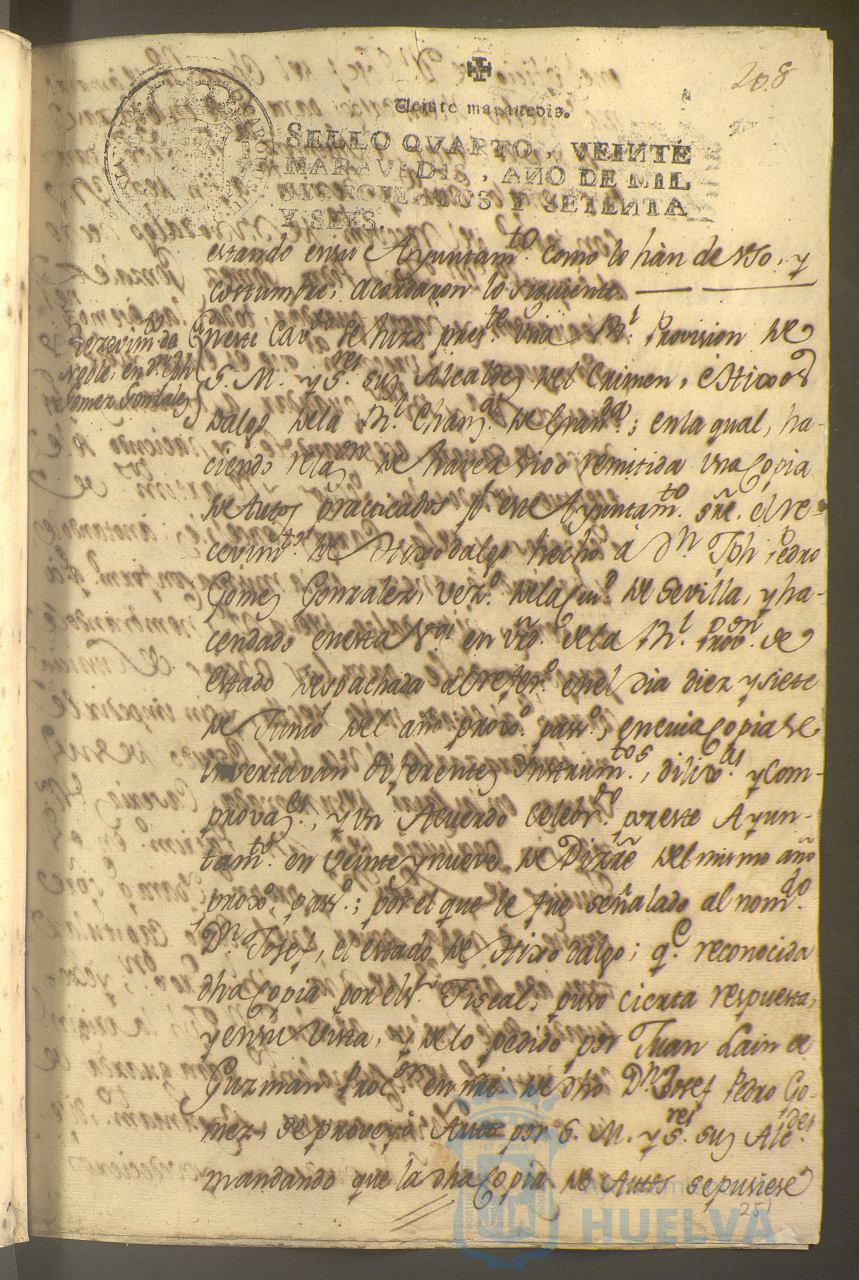 208
Veinte maravedis.
SELLO QVARTO, VEINTE
MARAVEDIS, AÑO DE MIL
SETECIENTOS Y SETENTA
Y SEIS.
estando en su Ayuntam.to como lo han de Uso, y
costumbre, acordaron lo siguiente
Recevim.to de
Noble, en Dn. Jph
Gomez Gonzalez
En este Cav.do se hizo pres.te una R.l Provision de
S. M. y S.res sus Alcaldes del Crimen, e Hijos
Dalgo dela R.l Chan.a de Gran.da; en la qual, ha-
ciendo rela.on de haver sido remitida una Copia
de Autos practicados p.r este Ayuntam.to sre. el re-
cevim.to de Hijo dalgo hecho à D.n Jph Pedro
Gomez Gonzalez, vez.o dela Ciu.d de Sevilla, y ha-
cendado en esta V.a en vrd. dela R.l Prov.on de
estado despachada al refer.o en el dia diez y siete
de Junio del año proxo. pass.o, en cuia Copia se
insertavan diferentes Instrum.tos, dilix.as y Com-
prova.es, y un Acuerdo Celebr.do por este Ayun-
tam.to en veinte y nueve de Dizre. del mismo año
proxo. pass.o; por el que le fue señalado al nom.do
D.n Josef, el estado de Hijo dalgo; q.e reconocida
dha Copia por el S.r Fiscal, puso cierta respuesta,
y en su Vista, y de lo pedido por Juan Lain de
Guzman Proc.or en nre. de dho D.n Josef Pedro Go-
mez, se proveyó Auto por S. M. y S.res sus Alc.des
mandando que la dha Copia de Autos se pusiese
251
HUELVA